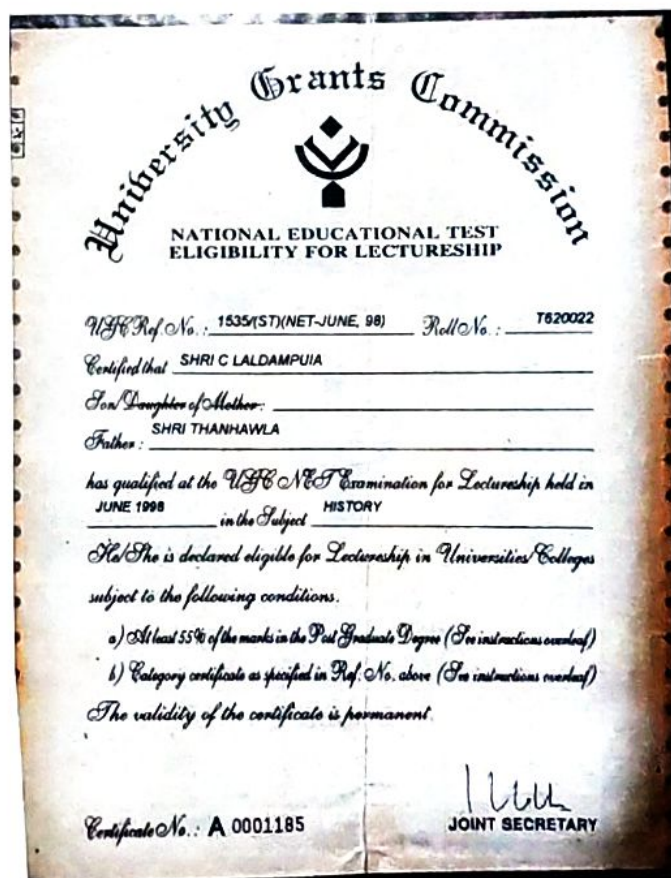 University Grants Commission
NATIONAL EDUCATIONAL TEST
ELIGIBILITY FOR LECTURESHIP
UGC Ref. No. : 1535/(ST)(NET-JUNE, 98) Roll No. : T620022
Certified that SHRI C LALDAMPUIA
Son/Daughter of Mother:
Father : SHRI THANHAWLA
has qualified at the UGC NET Examination for Lectureship held in
JUNE 1998 in the Subject HISTORY
He/She is declared eligible for Lectureship in Universities/Colleges
subject to the following conditions.
a) At least 55% of the marks in the Post Graduate Degree (See instructions overleaf)
b) Category certificate as specified in Ref. No. above (See instructions overleaf)
The validity of the certificate is permanent.
Certificate No. : A 0001185 JOINT SECRETARY